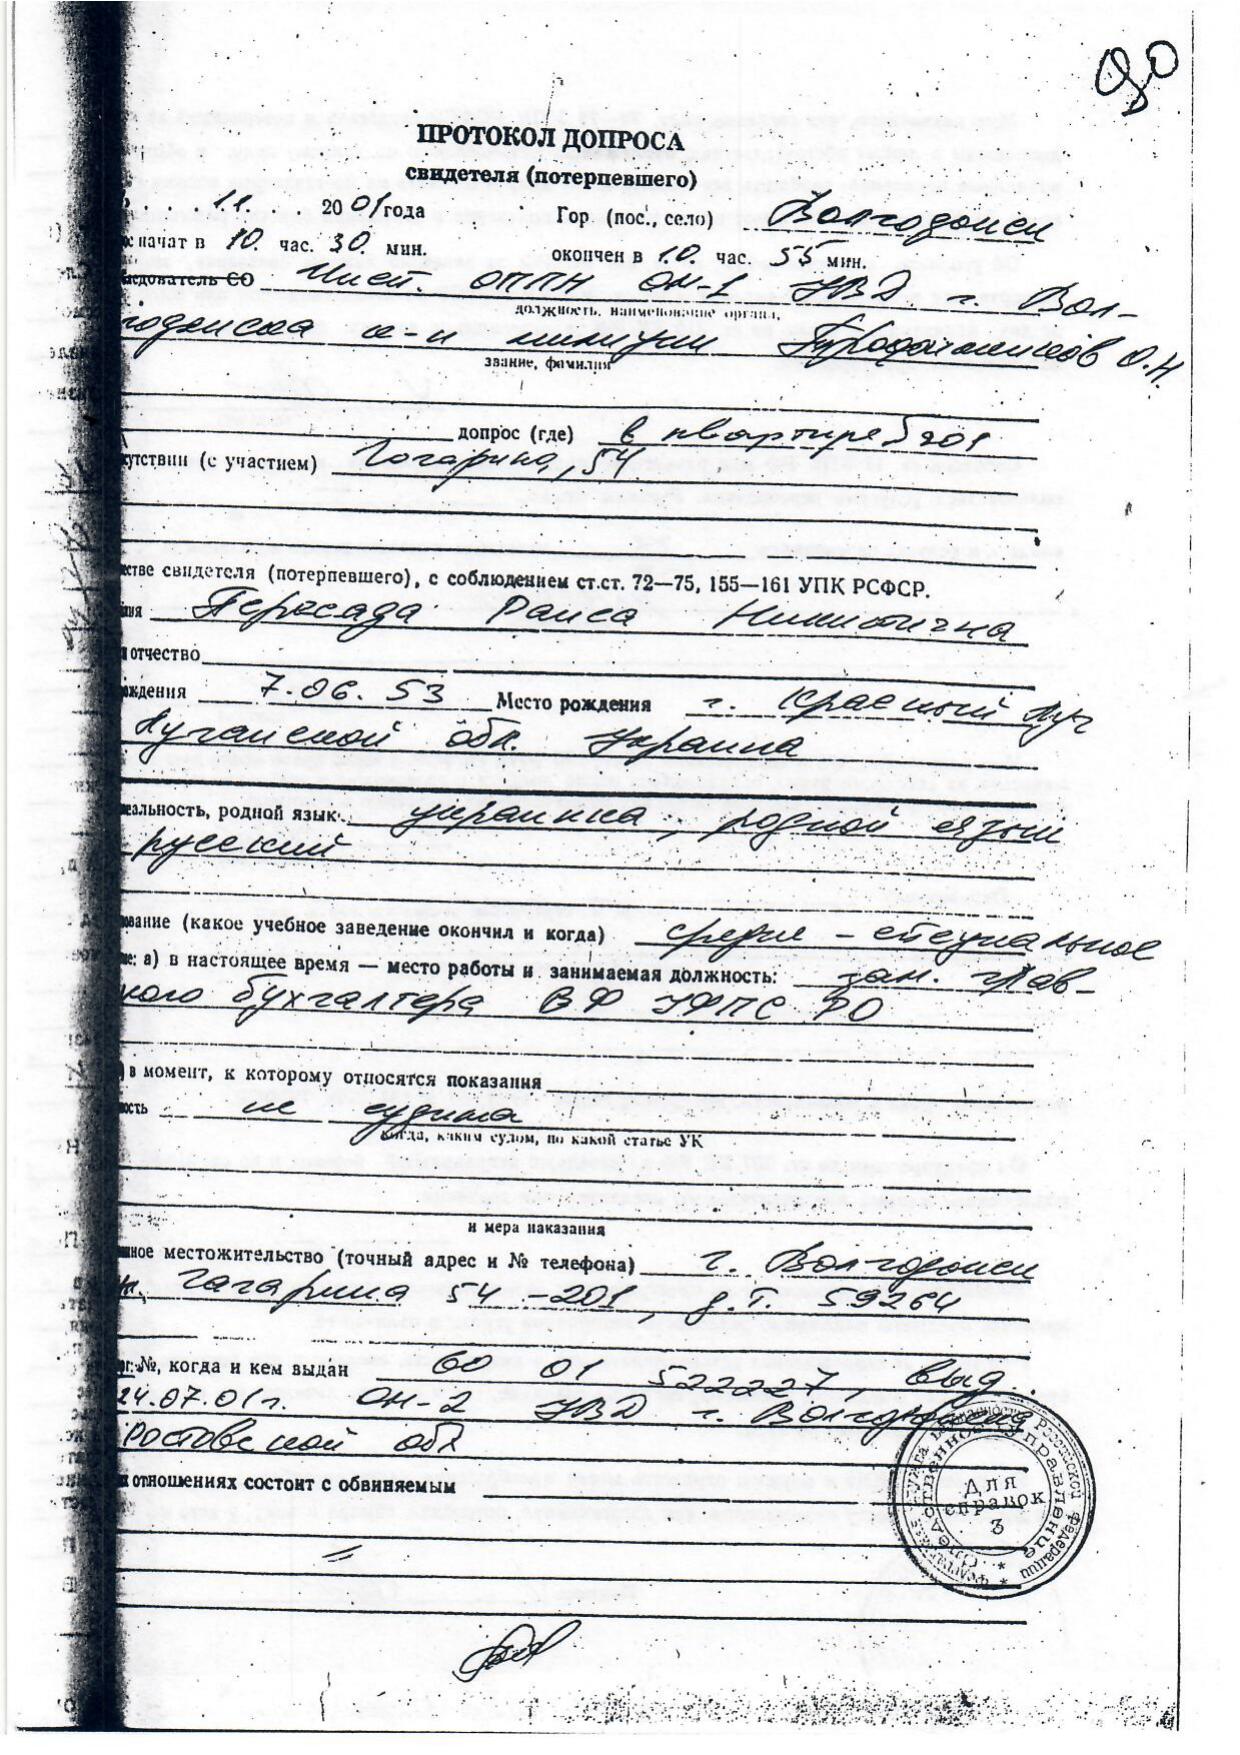 90
ПРОТОКОЛ ДОПРОСА
свидетеля (потерпевшего)
11 2001 года Гор. (пос., село) Волгодонск
начат в 10 час. 30 мин. окончен в 10 час. 55 мин.
едователь СО Инсп. ОППН ОМ-1 УВД г. Вол-
должность, наименование органа,
годонска м-и милиции О.Н.
звание, фамилия
допрос (где) в квартире 201
утствии (с участием) Гагарина, 54
стве свидетеля (потерпевшего), с соблюдением ст.ст. 72—75, 155—161 УПК РСФСР.
Персада Раиса Никитична
отчество
ождения 7.06.53 Место рождения г. Красный Луч
Луганской обл. Украина
альность, родной язык украинка, родной язык
русский
ование (какое учебное заведение окончил и когда) средне-специальное
ие: а) в настоящее время — место работы и занимаемая должность: зам. глав-
ного бухгалтера ВФ УФПС РО
в момент, к которому относятся показания
ность не судима
когда, каким судом, по какой статье УК
и мера наказания
нное местожительство (точный адрес и № телефона) г. Волгодонск
Гагарина 54-201, д.т. 59264
№, когда и кем выдан 60 01 522227, выд.
24.07.01г. ОМ-2 УВД г. Волгодонска
Ростовской обл
отношениях состоит с обвиняемым
Федеральная служба безопасности Российской Федерации
Следственное управление
Для
справок
3